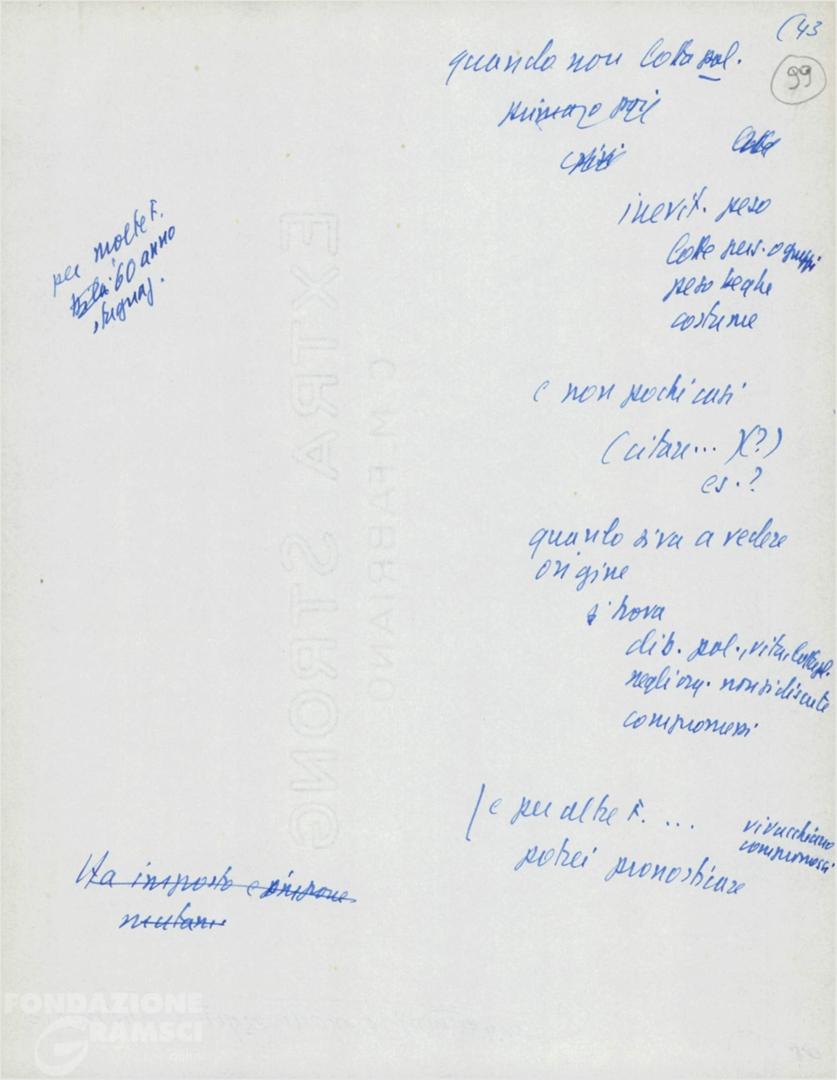 (43
99
quando non lotta pol.
inevit. peso
lotte pers. o gruppi
peso beghe
costume
per molte F.
60 anno
e non pochi casi
(citare... )(?)
es. ?
quando si va a vedere
origine
si trova
dib. pol., vita,
negli org. non si discute
compromessi
e per altre F. ...
vivacchiano
compromessi
potrei pronosticare
Ha imposto e
EXTRA STRONG
C M FABRIAN
FONDAZIONE
GRAMSCI